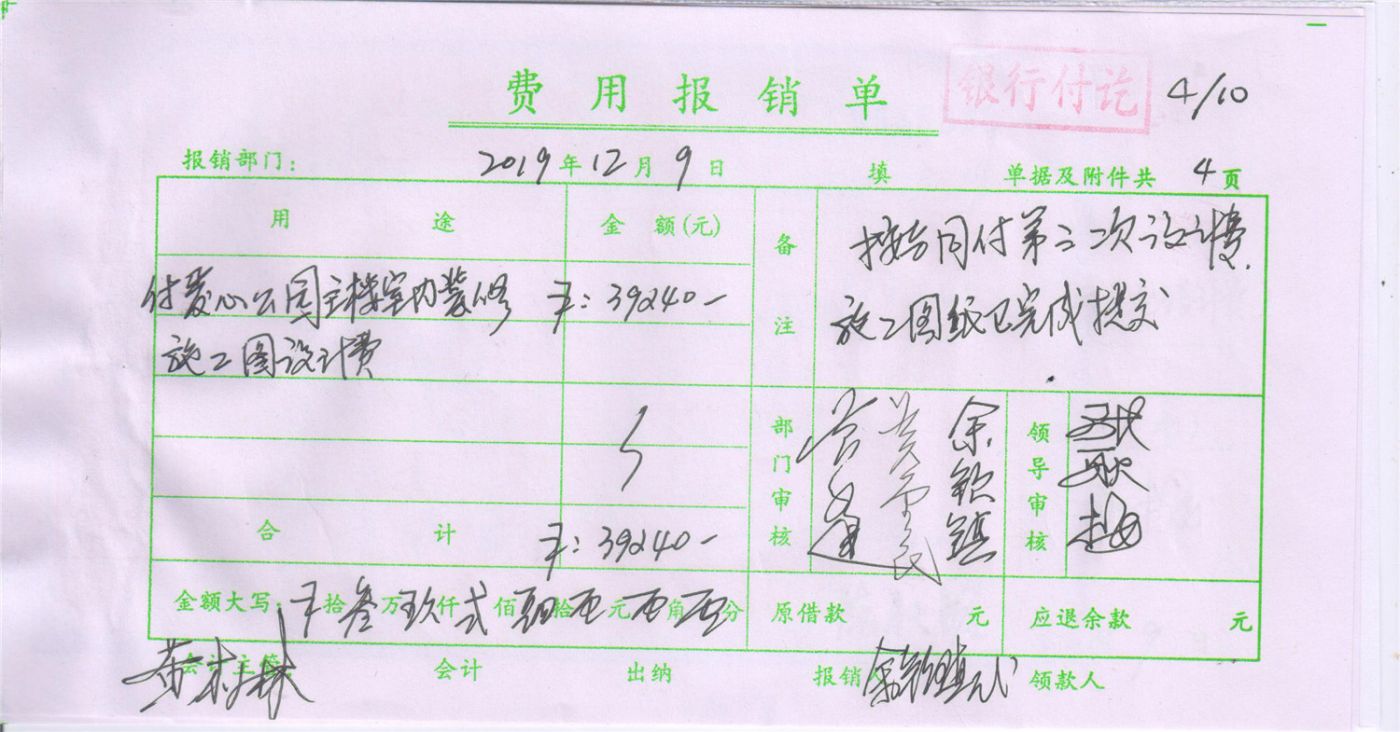 费用报销单
银行付讫 4/10
报销部门： 2019年12月9日 填 单据及附件共 4 页
用途 金额(元) 备注
按合同付第二次设计费.
付爱心公园主楼室内装修 ¥：39240-
施工图纸已完成提交
施工图设计费
部门审核 余钦镇 领导审核
合计 ¥：39240-
金额大写： ¥拾叁万玖仟弍佰肆拾零元零角零分 原借款 元 应退余款 元
会计主管 会计 出纳 报销 领款人